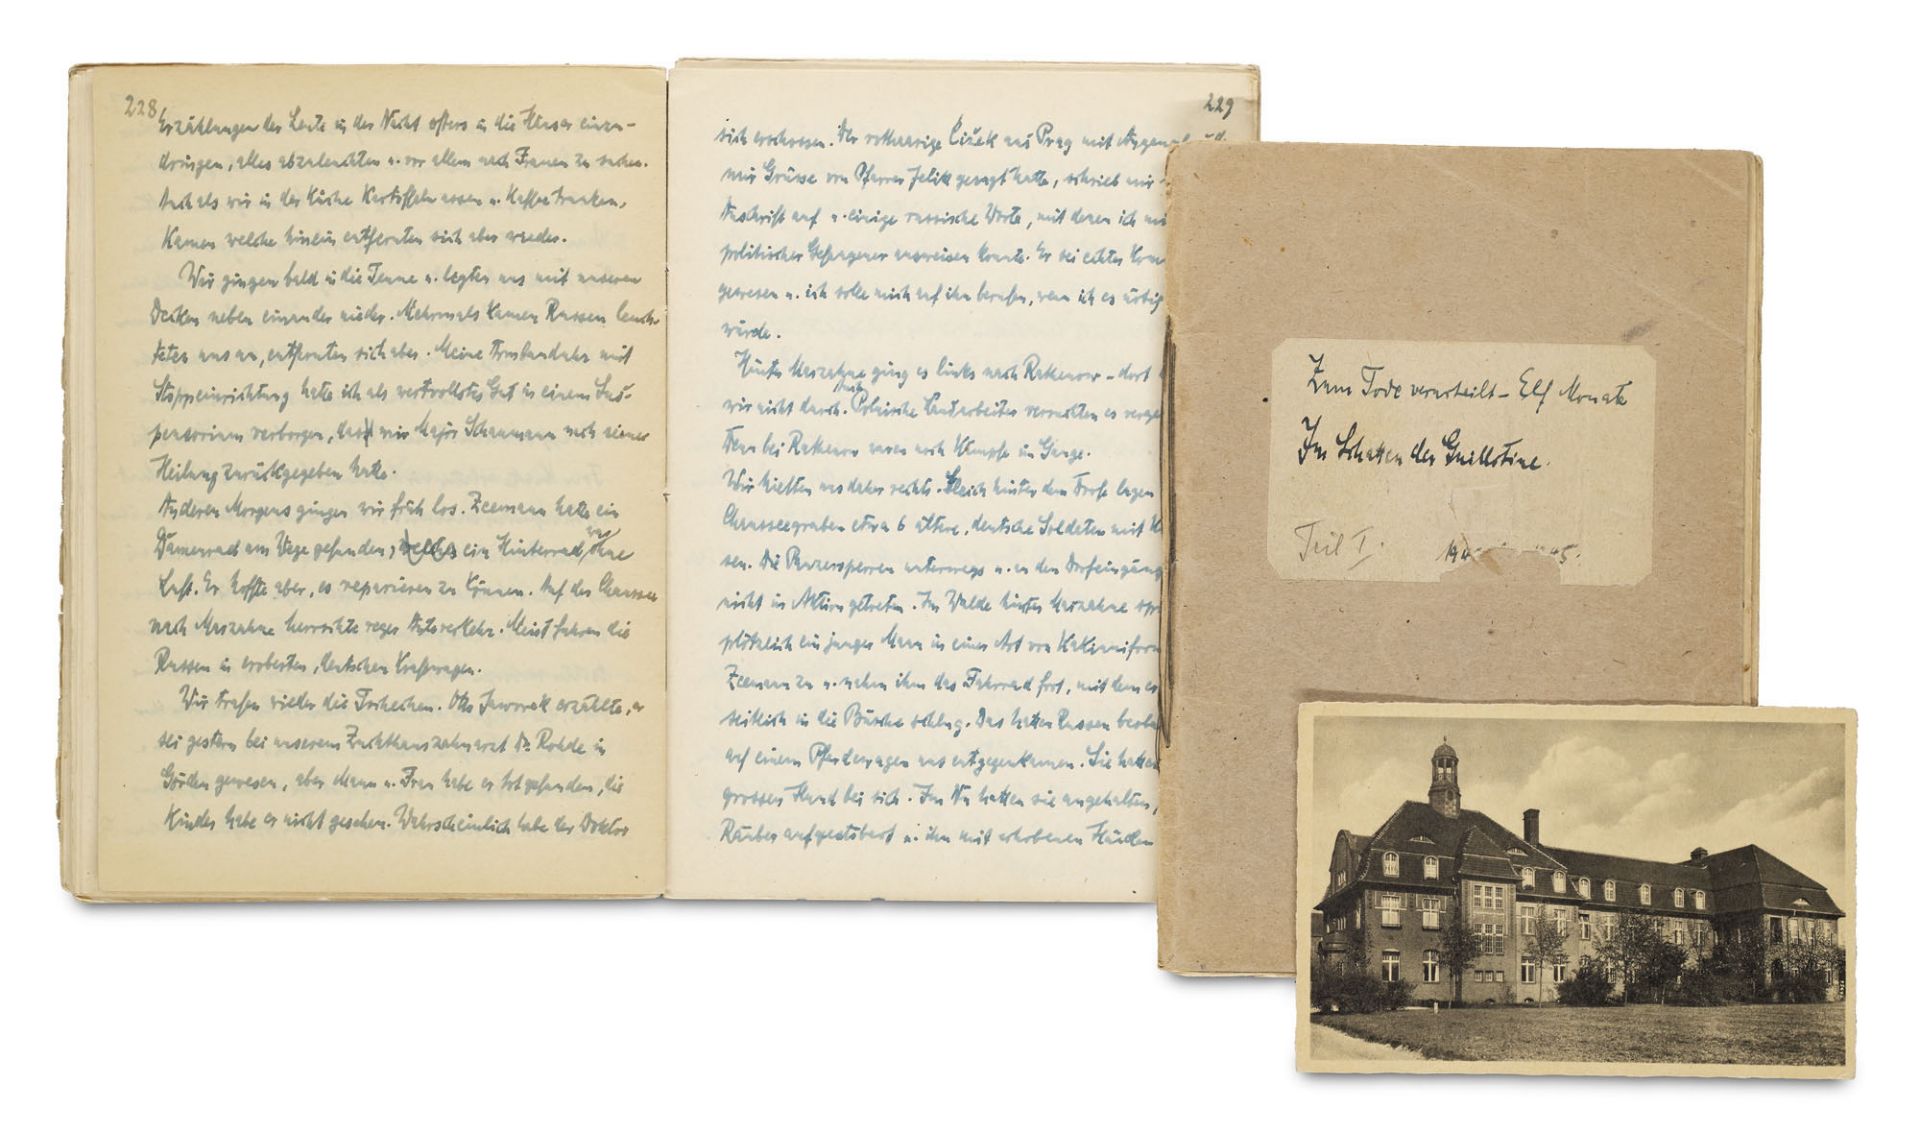 228
Erzählungen der Leute in der Nacht öfters in die Häuser einzu-
dringen, alles abzuleuchten u. vor allem nach Frauen zu suchen.
Auch als wir in der Küche Kartoffeln assen u. Kaffee tranken,
kamen welche hinein entfernten sich aber wieder.
Wir gingen bald in die Tenne u. legten uns mit unseren
Decken neben einander nieder. Mehrmals kamen Russen leuch-
teten uns an, entfernten sich aber. Meine Armbanduhr mit
Stoppeinrichtung hatte ich als wertvollstes Gut in einem Sus-
pensorium verborgen, das mir Major Schaumann nach seiner
Heilung zurückgegeben hatte.
Anderen Morgens gingen wir früh los. Zeemann hatte ein
Damenrad am Wege gefunden, ein Hinterrad war ohne
Luft. Er hoffte aber, es reparieren zu können. Auf der Chaussee
nach Marzahne herrschte reger Autoverkehr. Meist fuhren die
Russen in eroberten, deutschen Kraftwagen.
Wir trafen wieder die Tschechen. Otto Jaworek erzählte, er
sei gestern bei unserem Zuchthauszahnarzt Dr. Rohde in
Görden gewesen, aber Mann u. Frau habe er tot gefunden, die
Kinder habe er nicht gesehen. Wahrscheinlich habe der Doktor
229
sich erschossen. Der rothaarige Čižek aus Prag mit
mir Grüsse von Pfarrer Jelik gesagt hatte, schrieb mir
Anschrift auf u. einige russische Worte, mit denen ich
politischer Gefangener ausweisen konnte. Er sei echter
gewesen u. ich solle mich auf ihn berufen, wenn ich es nötig
würde.
Hinter Marzahne ging es links nach Rathenow – dort
wir nicht durch. Auch Polnische Landarbeiter verrieten es
Denn bei Rathenow waren noch Kämpfe im Gange.
Wir hielten uns daher rechts. Gleich hinter dem Dorfe lagen
Chausseegraben etwa 6 ältere, deutsche Soldaten mit
sen. Die Panzersperren unterwegs u. an den Dorfeingäng
nicht in Aktion getreten. Im Walde hinter Marzahne
plötzlich ein junger Mann in einer Art von Kakiunifor
Zeemann zu u. nahm ihm das Fahrrad fort, mit dem er
seitlich in die Büsche schlug. Das hatten Russen
auf einem Pferdewagen uns entgegenkamen. Sie hatten
grossen Hund bei sich. Im Nu hatten sie angehalten,
Räuber aufgestöbert u. ihm mit erhobenen Händen
Zum Tode verurteilt – Elf Monate
Im Schatten der Guillotine.
Teil I.
45.